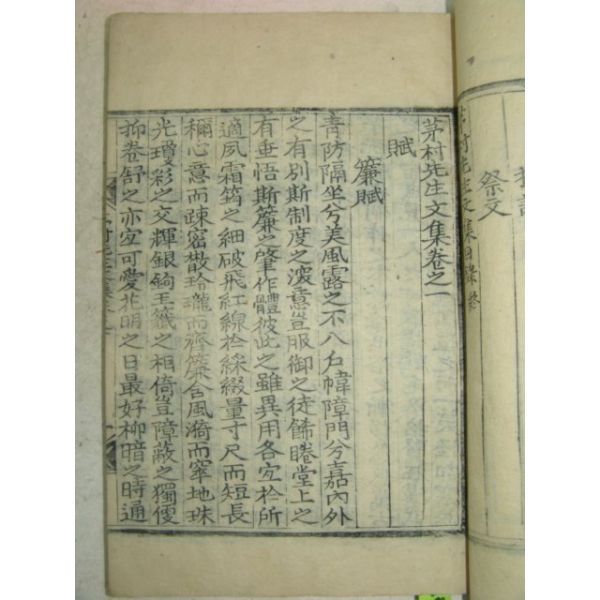 祭文
村先生文集目錄終
茅村先生文集卷之一
賦
簾賦
青防隔坐兮美風露之不入戶幃障門兮嘉內外
之有別斯制度之深意豈服御之徒餙睠堂上之
有垂悟斯簾之肇作體彼此之雖異用各宜於所
適夙霜筠之細破飛紅線於綵綴量寸尺而短長
稱心意而疎密散玲瓏而齊簾含風漪而窣地珠
光瓊彩之交輝銀鉤玉籤之相倚豈障蔽之獨優
抑卷舒之亦宜可愛花明之日最好柳暗之時通